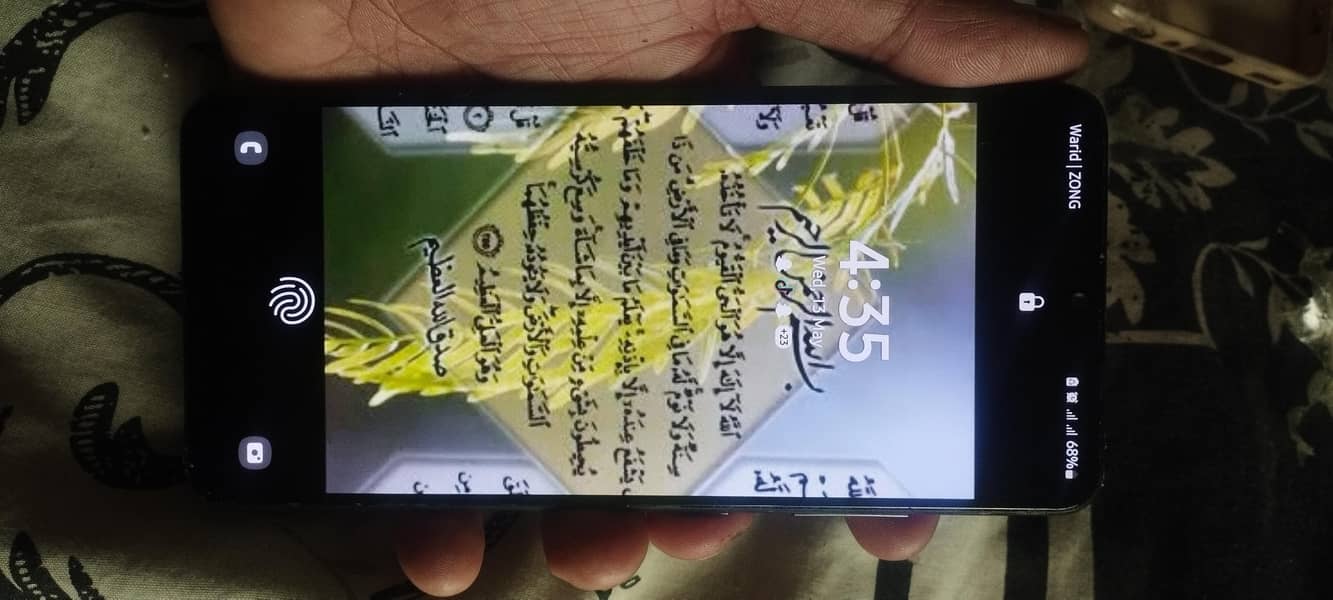 Warid | ZONG
68%
4:35
Wed, 13 May
+23
بسم الله الرحمن الرحيم
اللَّهُ لَا إِلَٰهَ إِلَّا هُوَ الْحَيُّ الْقَيُّومُ لَا تَأْخُذُهُ
سِنَةٌ وَلَا نَوْمٌ لَهُ مَا فِي السَّمَوَاتِ وَمَا فِي الْأَرْضِ مَنْ ذَا
يَشْفَعُ عِنْدَهُ إِلَّا بِإِذْنِهِ يَعْلَمُ مَا بَيْنَ أَيْدِيهِمْ وَمَا خَلْفَهُمْ
يُحِيطُونَ بِشَيْءٍ مِنْ عِلْمِهِ إِلَّا بِمَا شَاءَ وَسِعَ كُرْسِيُّهُ
السَّمَوَاتِ وَالْأَرْضَ وَلَا يَئُودُهُ حِفْظُهُمَا
وَهُوَ الْعَلِيُّ الْعَظِيمُ
صدق الله العظيم